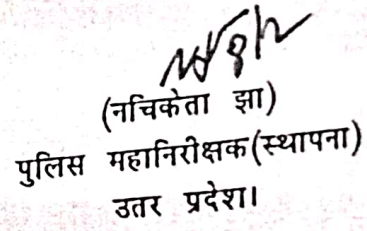 (नचिकेता झा)
पुलिस महानिरीक्षक(स्थापना)
उतर प्रदेश।